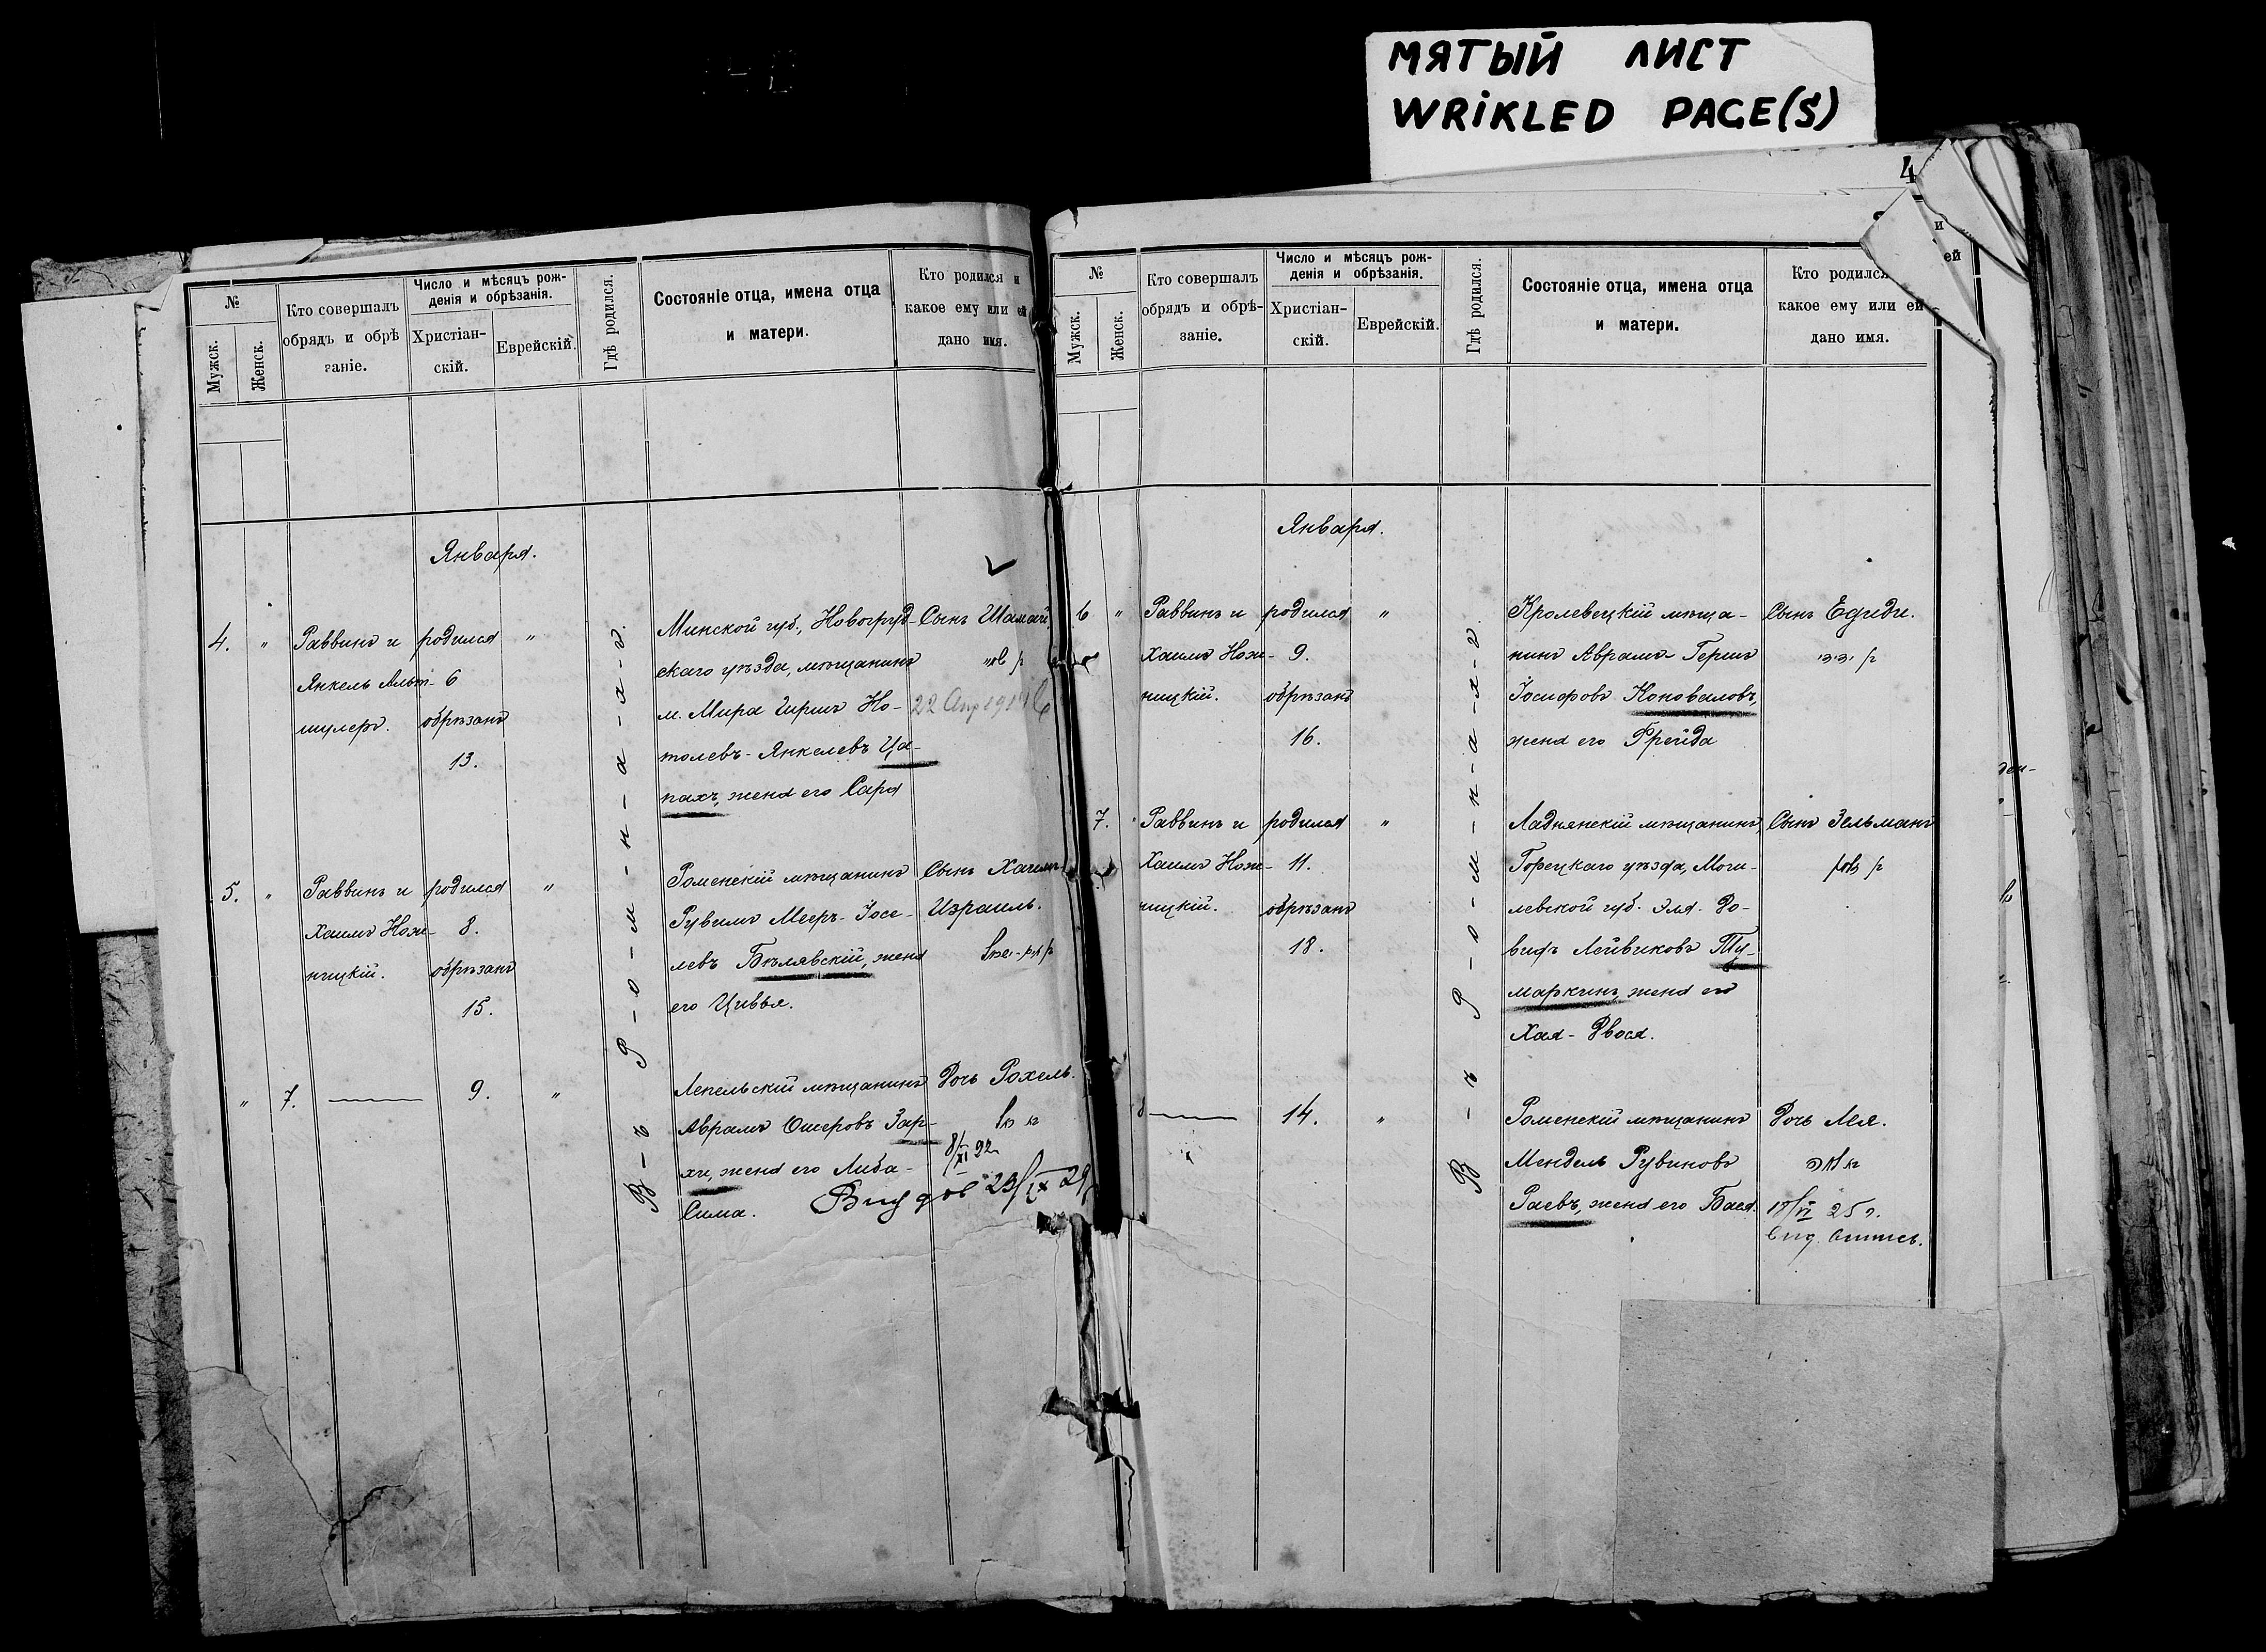 МЯТЫЙ ЛИСТ
WRIKLED PAGE(S)
4
№
Мужск.
Женск.
Кто совершалъ
обрядъ и обрѣ
заніе.
Число и мѣсяцъ рож-
денія и обрѣзанія.
Христіан-
скій.
Еврейскій.
Гдѣ родился.
Состояніе отца, имена отца
и матери.
Кто родился и
какое ему или ей
дано имя.
Января.
4. „ Раввинъ и родился „
Янкель Альт- 6
шулеръ. обрѣзанъ
13.
Минской губ., Новогруд-
скаго уѣзда, мѣщанинъ
м. Мира Гиршъ Но-
толевъ-Янкелевъ Ца-
пахъ, жена его Сара
Сынъ Шамай.
22 Апр
5. „ Раввинъ и родился „
Хаимъ Нож- 8.
ницкій. обрѣзанъ
15.
Роменскій мѣщанинъ
Рувимъ Мееръ-Іосе-
левъ Бѣлявскій, жена
его Цивья.
Сынъ Хаимъ-
Израиль.
„ 7. 9. „
Лепельскій мѣщанинъ
Аврамъ Ошеровъ Зар-
хи, жена его Либа-
Сима.
Дочь Рохель.
8/XI 92
23/IX 29
В-ъ Р-о-м-н-а-х-ъ.
№
Мужск.
Женск.
Кто совершалъ
обрядъ и обрѣ-
заніе.
Число и мѣсяцъ рож-
денія и обрѣзанія.
Христіан-
скій.
Еврейскій.
Гдѣ родился.
Состояніе отца, имена отца
и матери.
Кто родился
какое ему или ей
дано имя.
и
ей
Января.
6 „ Раввинъ и родился „
Хаимъ Нож- 9.
ницкій. обрѣзанъ
16.
Кролевецкій мѣща-
нинъ Аврамъ-Гершъ
Іосифовъ Коноваловъ,
жена его Фрейда
Сынъ Едиди.
7. Раввинъ и родился „
Хаимъ Нож- 11.
ницкій. обрѣзанъ
18.
Ладнянскій мѣщанинъ,
Горецкаго уѣзда, Моги-
левской губ. Эля-До-
видъ Лейвиковъ Ту-
маркинъ, жена его
Хая-Двося.
Сынъ Зельманъ
8 14. „
Роменскій мѣщанинъ
Мендель Рувиновъ
Раевъ, жена его Бася.
Дочь Лея.
לאה
18/VI 25 г.
В-ъ Р-о-м-н-а-х-ъ.